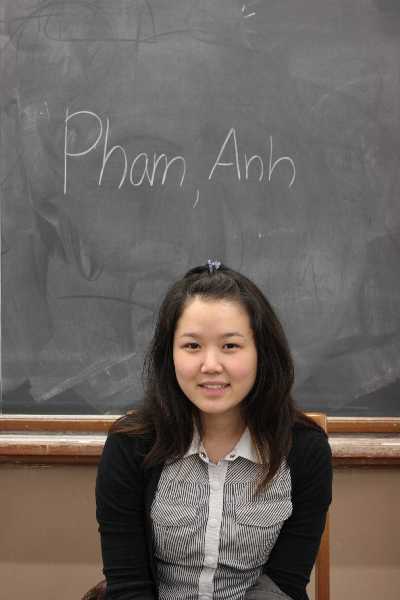 Pham, Anh